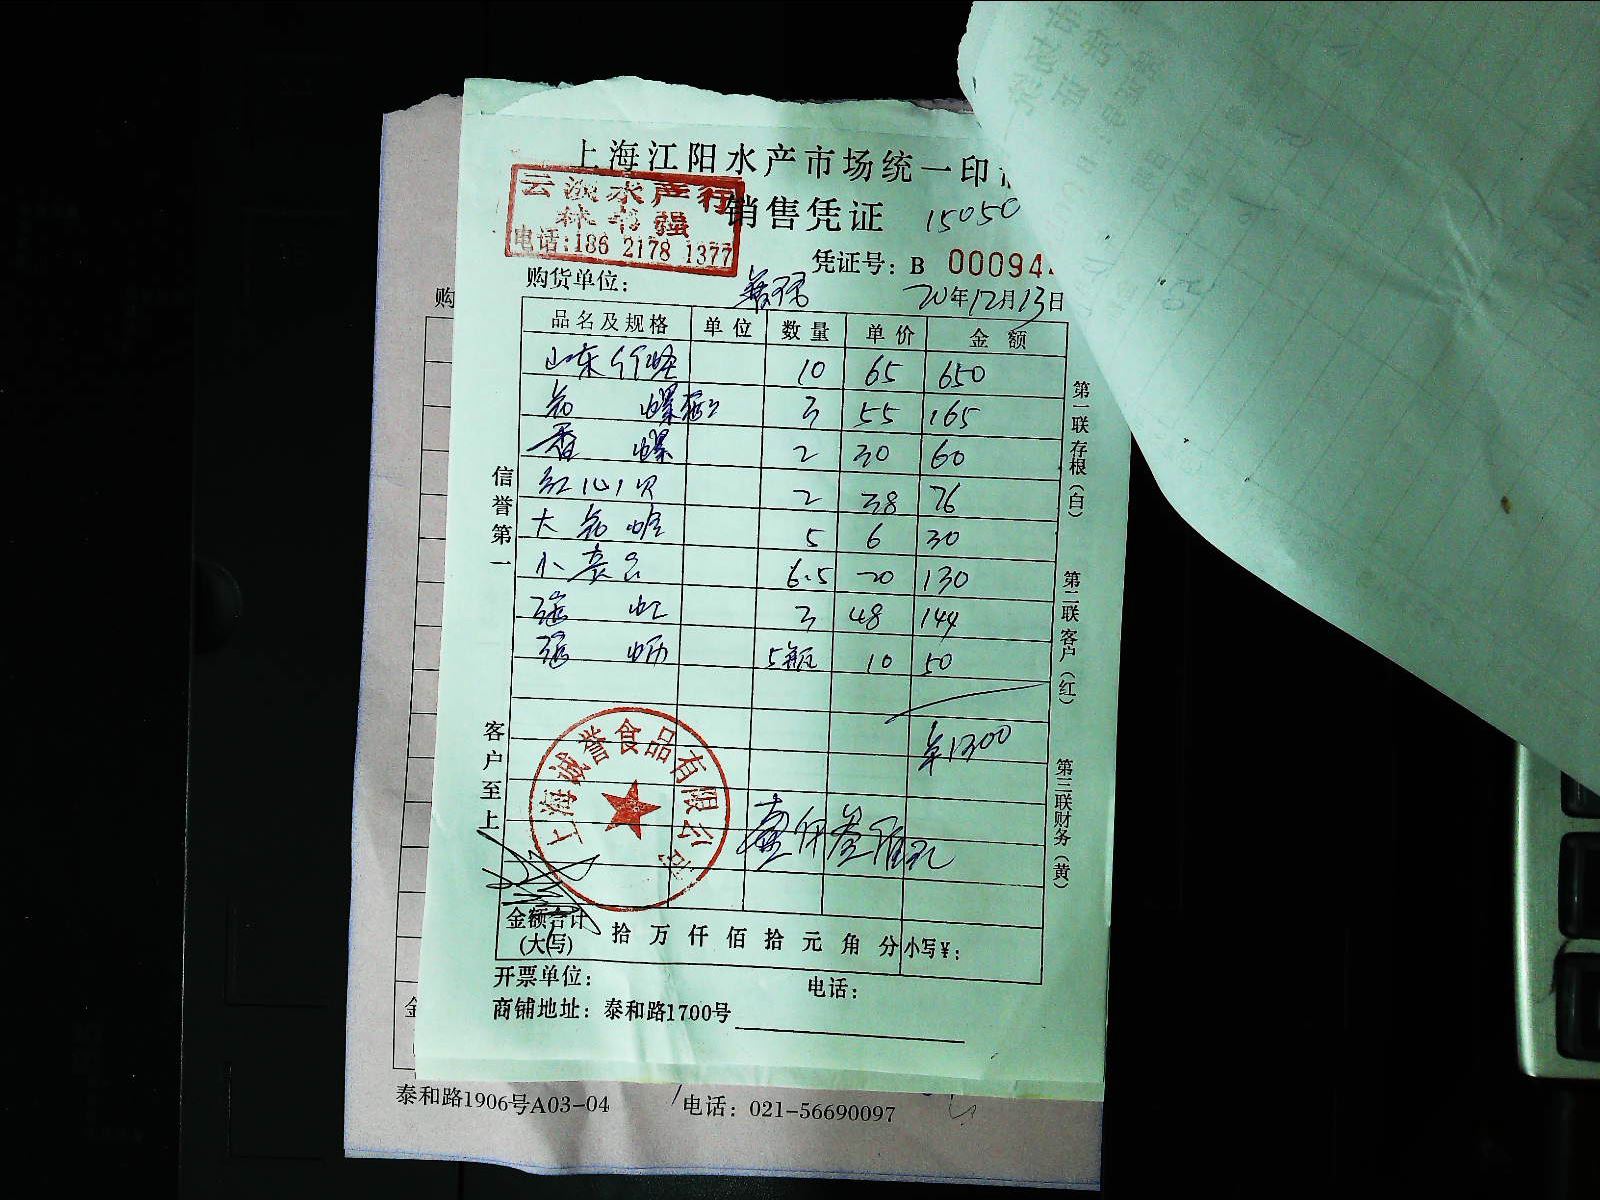 上海江阳水产市场统一印
云淡水产行
林书强
电话:186 2178 1377
销售凭证 15050
凭证号: B 00094
购货单位:
20年12月13日
品名及规格 单位 数量 单价 金额
山东竹蛏 10 65 650
螺 3 55 165
香螺 2 30 60
红心贝 2 38 76
大 5 6 30
小 6.5 20 130
3 48 144
5瓶 10 50
¥1300
壹仟叁佰元
上海诚誉食品有限公司
信誉第一
客户至上
第一联存根(白)
第二联客户(红)
第三联财务(黄)
金额合计
(大写)
拾万仟佰拾元角分 小写¥:
开票单位: 电话:
商铺地址: 泰和路1700号
购
金
泰和路1906号A03-04 电话: 021-56690097